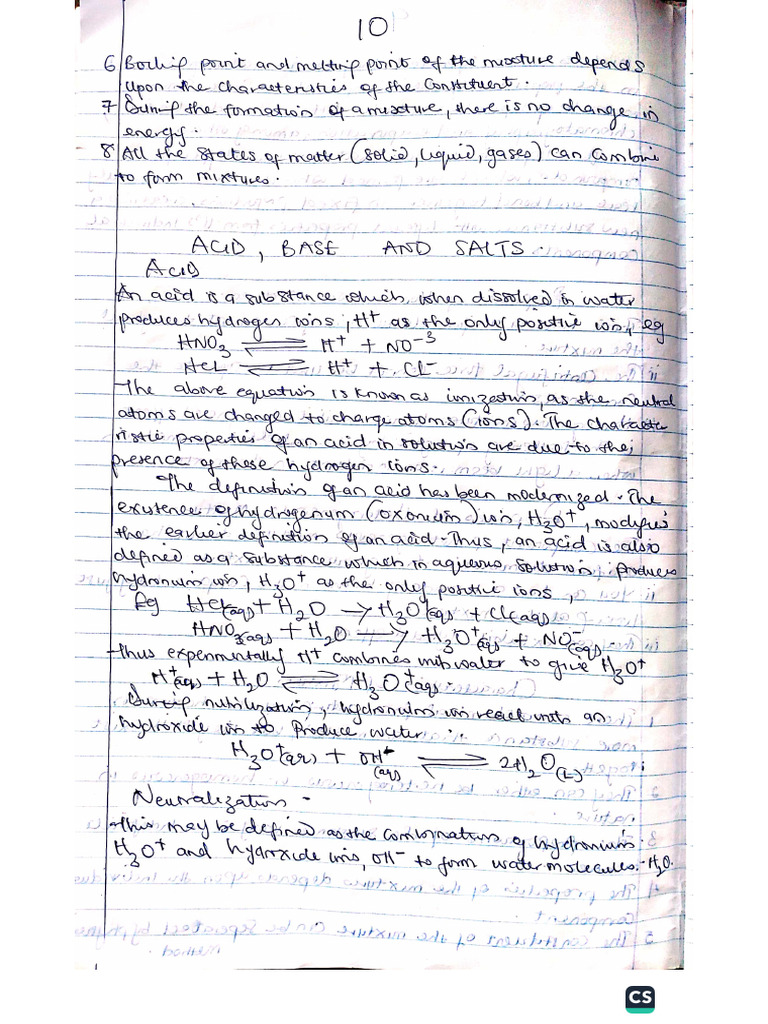 10
6 Boiling point and melting point of the mixture depends
upon the characteristics of the Constituent.
7 During the formation of a mixture, there is no change in
energy.
8 All the states of matter (solid, liquid, gases) can combine
to form mixtures.
ACID, BASE AND SALTS.
ACID
An acid is a substance which, when dissolved in water
produces hydrogen ions, H⁺ as the only positive ion, eg
HNO₃ ⇌ H⁺ + NO⁻³
HCL ⇌ H⁺ + Cl⁻
The above equation is known as ionization, as the neutral
atoms are changed to charge atoms (ions). The characte
ristic properties of an acid in solution are due to the
presence of these hydrogen ions.
The definition of an acid has been modernized. The
existence of hydrogenium (oxonium) ion, H₃O⁺, modifies
the earlier definition of an acid. Thus, an acid is also
defined as a substance which in aqueous solution produces
hydronium ion, H₃O⁺ as the only positive ions,
Eg HCl(aq) + H₂O → H₃O⁺(aq) + Cl(aq)
HNO₃(aq) + H₂O → H₃O⁺(aq) + NO⁻(aq)
Thus experimentally H⁺ combines with water to give H₃O⁺
H⁺(aq) + H₂O ⇌ H₃O⁺(aq)
During , hydronium ion react with an
hydroxide ion to produce water.
H₃O⁺(aq) + OH⁻(aq) ⇌ 2H₂O(L)
Neutralization -
This may be defined as the combination of hydronium
H₃O⁺ and hydroxide ions, OH⁻ to form water molecules. H₂O.
CS